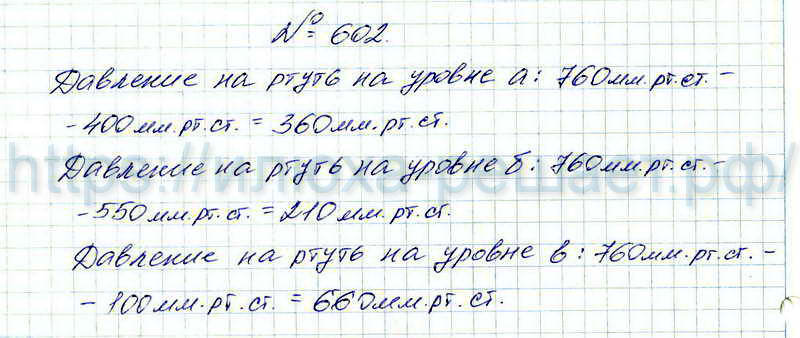 № 602.
Давление на ртуть на уровне а: 760мм.рт.ст. -
- 400мм.рт.ст. = 360мм.рт.ст.
Давление на ртуть на уровне б: 760мм.рт.ст. -
https://илюха-решает.рф/
- 550мм.рт.ст. = 210мм.рт.ст.
Давление на ртуть на уровне в: 760мм.рт.ст. -
- 100мм.рт.ст. = 660мм.рт.ст.